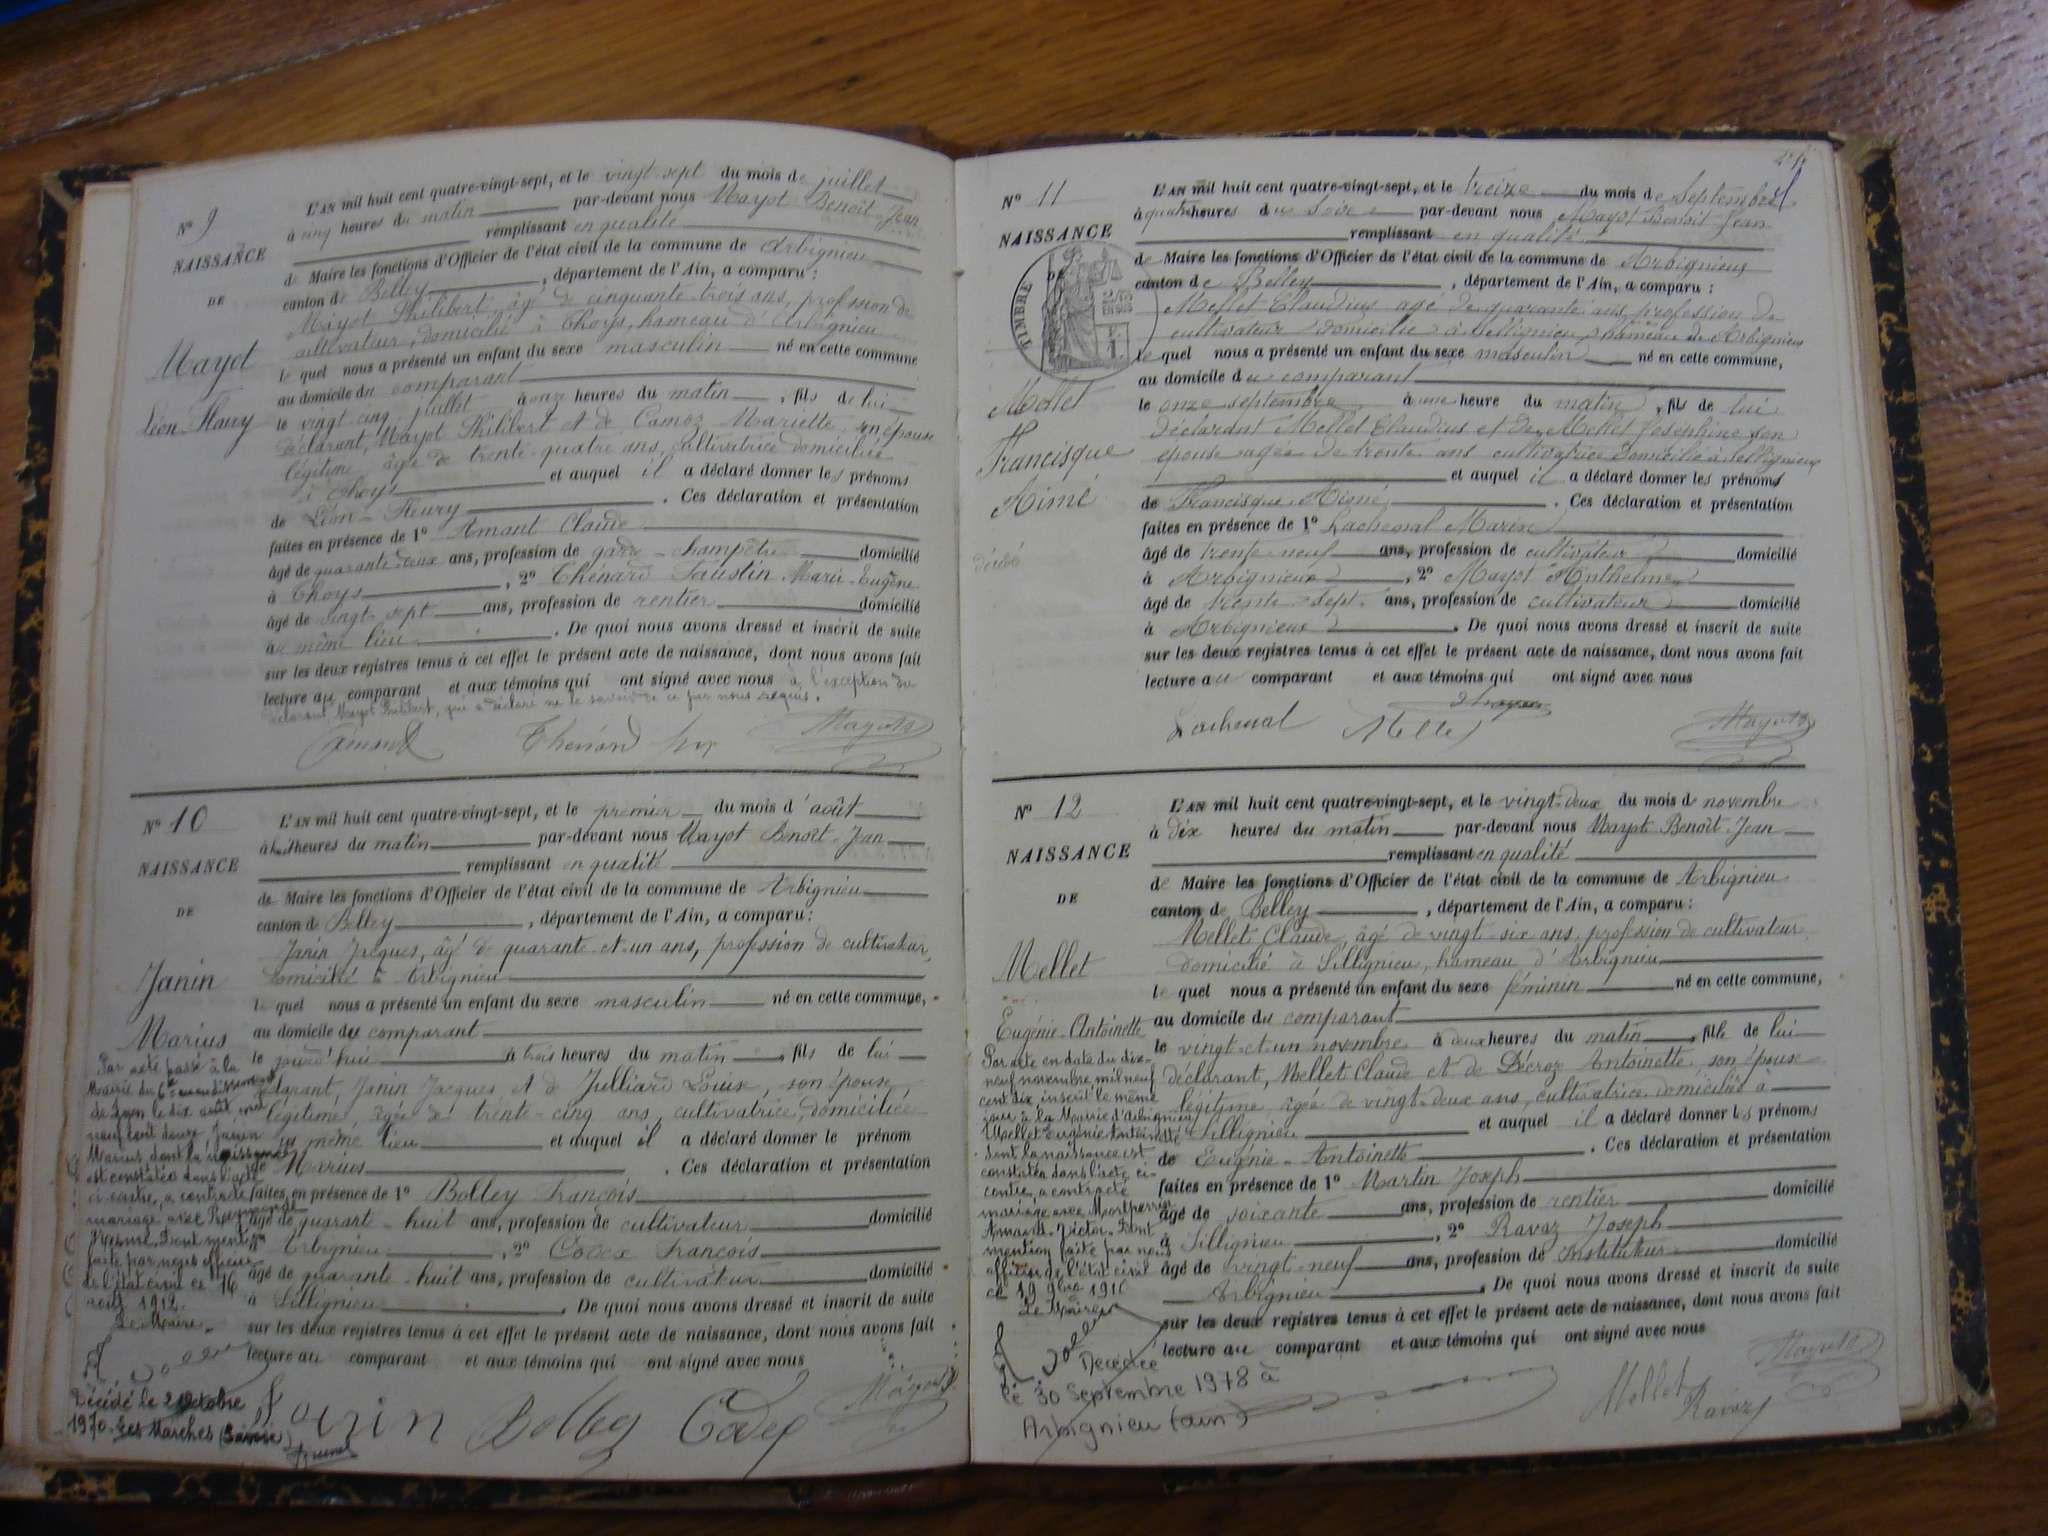 N° 9
NAISSANCE
DE
Mayot
Léon-Fleury
L'AN mil huit cent quatre-vingt-sept, et le vingt-sept du mois de juillet
à cinq heures du matin par-devant nous Mayot Benoît-Jean
remplissant en qualité
de Maire les fonctions d'Officier de l'état civil de la commune de Arbignieu
canton de Belley, département de l'Ain, a comparu :
Mayot Philibert âgé de cinquante-trois ans, profession de
cultivateur, domicilié à Thoys, hameau d'Arbignieu
le quel nous a présenté un enfant du sexe masculin né en cette commune
au domicile du comparant
le vingt cinq juillet à onze heures du matin, fils de lui
déclarant, Mayot Philibert et de Camoz Mariette, son épouse
légitime, âgée de trente-quatre ans, cultivatrice domiciliée
à Thoys et auquel il a déclaré donner les prénoms
de Léon-Fleury. Ces déclaration et présentation
faites en présence de 1° Amant Claude
âgé de quarante-deux ans, profession de garde-champêtre domicilié
à Thoys, 2° Thénard Faustin Marie-Eugène
âgé de vingt sept ans, profession de rentier domicilié
à même lieu. De quoi nous avons dressé et inscrit de suite
sur les deux registres tenus à cet effet le présent acte de naissance, dont nous avons fait
lecture au comparant et aux témoins qui ont signé avec nous à l'exception du
déclarant Mayot Philibert, qui a déclaré ne le savoir de ce par nous requis.
Amant Thénard Mayot
N° 10
NAISSANCE
DE
Janin
Marius
L'AN mil huit cent quatre-vingt-sept, et le premier du mois d'août
à huit heures du matin par-devant nous Mayot Benoît-Jean
remplissant en qualité
de Maire les fonctions d'Officier de l'état civil de la commune de Arbignieu
canton de Belley, département de l'Ain, a comparu :
Janin Jacques, âgé de quarante-et-un ans, profession de cultivateur,
domicilié à Arbignieu
le quel nous a présenté un enfant du sexe masculin né en cette commune,
au domicile du comparant
le jourd'hui à trois heures du matin, fils de lui
déclarant, Janin Jacques et de Julliard Louise, son épouse
légitime, âgée de trente-cinq ans, cultivatrice, domiciliée
au même lieu et auquel il a déclaré donner le prénom
de Marius. Ces déclaration et présentation
faites en présence de 1° Bolley François
âgé de quarante-huit ans, profession de cultivateur domicilié
à Arbignieu, 2° Codex François
âgé de quarante-huit ans, profession de cultivateur domicilié
à Sillignieu. De quoi nous avons dressé et inscrit de suite
sur les deux registres tenus à cet effet le présent acte de naissance, dont nous avons fait
lecture au comparant et aux témoins qui ont signé avec nous
Janin Bolley Codex Mayot
Par acte passé à la
Mairie du 6e arrondissement
de Lyon le dix août mil
neuf cent douze, Janin
Marius dont la naissance
est constatée dans l'acte
ci-contre, a contracté
mariage avec Raymond
Jeanne. Dont mention
faite par nous officier
de l'état civil ce 16
août 1912.
Le Maire
Décédé le 2 Octobre
1970 Les Marches (Savoie)
N° 11
NAISSANCE
DE
TIMBRE
Mellet
Francisque
Aimé
décédé
L'AN mil huit cent quatre-vingt-sept, et le treize du mois de Septembre
à quatre heures du Soir par-devant nous Mayot Benoît Jean
remplissant en qualité
de Maire les fonctions d'Officier de l'état civil de la commune de Arbignieux
canton de Belley, département de l'Ain, a comparu :
Mellet Claudius agé de quarante ans, profession de
cultivateur domicilié à Sillignieu, hameau de Arbignieu
le quel nous a présenté un enfant du sexe masculin né en cette commune,
au domicile du comparant
le onze septembre à une heure du matin, fils de lui
déclarant Mellet Claudius et de Mellet Joséphine son
épouse agée de trente ans cultivatrice domicilié à Sillignieux
et auquel il a déclaré donner les prénoms
de Francisque Aimé. Ces déclaration et présentation
faites en présence de 1° Lachenal Marin
âgé de trente-neuf ans, profession de cultivateur domicilié
à Arbignieux, 2° Mayot Anthelme
âgé de trente-sept ans, profession de cultivateur domicilié
à Arbignieux. De quoi nous avons dressé et inscrit de suite
sur les deux registres tenus à cet effet le présent acte de naissance, dont nous avons fait
lecture au comparant et aux témoins qui ont signé avec nous
Lachenal Mellet Mayot
N° 12
NAISSANCE
DE
Mellet
Eugénie-Antoinette
L'AN mil huit cent quatre-vingt-sept, et le vingt-deux du mois de novembre
à dix heures du matin par-devant nous Mayot Benoît-Jean
remplissant en qualité
de Maire les fonctions d'Officier de l'état civil de la commune de Arbignieu
canton de Belley, département de l'Ain, a comparu :
Mellet Claude, âgé de vingt-six ans, profession de cultivateur
domicilié à Sillignieu, hameau d'Arbignieu
le quel nous a présenté un enfant du sexe féminin né en cette commune,
au domicile du comparant
le vingt-et-un novembre à deux heures du matin, fille de lui
déclarant, Mellet Claude et de Décroz Antoinette, son épouse
légitime, âgée de vingt-deux ans, cultivatrice, domiciliée à
Sillignieu et auquel il a déclaré donner les prénoms
de Eugénie-Antoinette. Ces déclaration et présentation
faites en présence de 1° Martin Joseph
âgé de soixante ans, profession de rentier domicilié
à Sillignieu, 2° Ravaz Joseph
âgé de vingt-neuf ans, profession de Instituteur domicilié
Arbignieu. De quoi nous avons dressé et inscrit de suite
sur les deux registres tenus à cet effet le présent acte de naissance, dont nous avons fait
lecture au comparant et aux témoins qui ont signé avec nous
Mellet Ravaz Mayot
Par acte en date du dix-
neuf novembre mil neuf
cent dix, inscrit le même
jour à la Mairie d'Arbignieu
Mellet Eugénie Antoinette
dont la naissance est
constatée dans l'acte ci-
contre, a contracté
mariage avec
Victor. Dont
mention faite par nous
officier de l'état civil
ce 19 9bre 1910
Le Maire
Décédée
le 30 Septembre 1978 à
Arbignieu (ain)